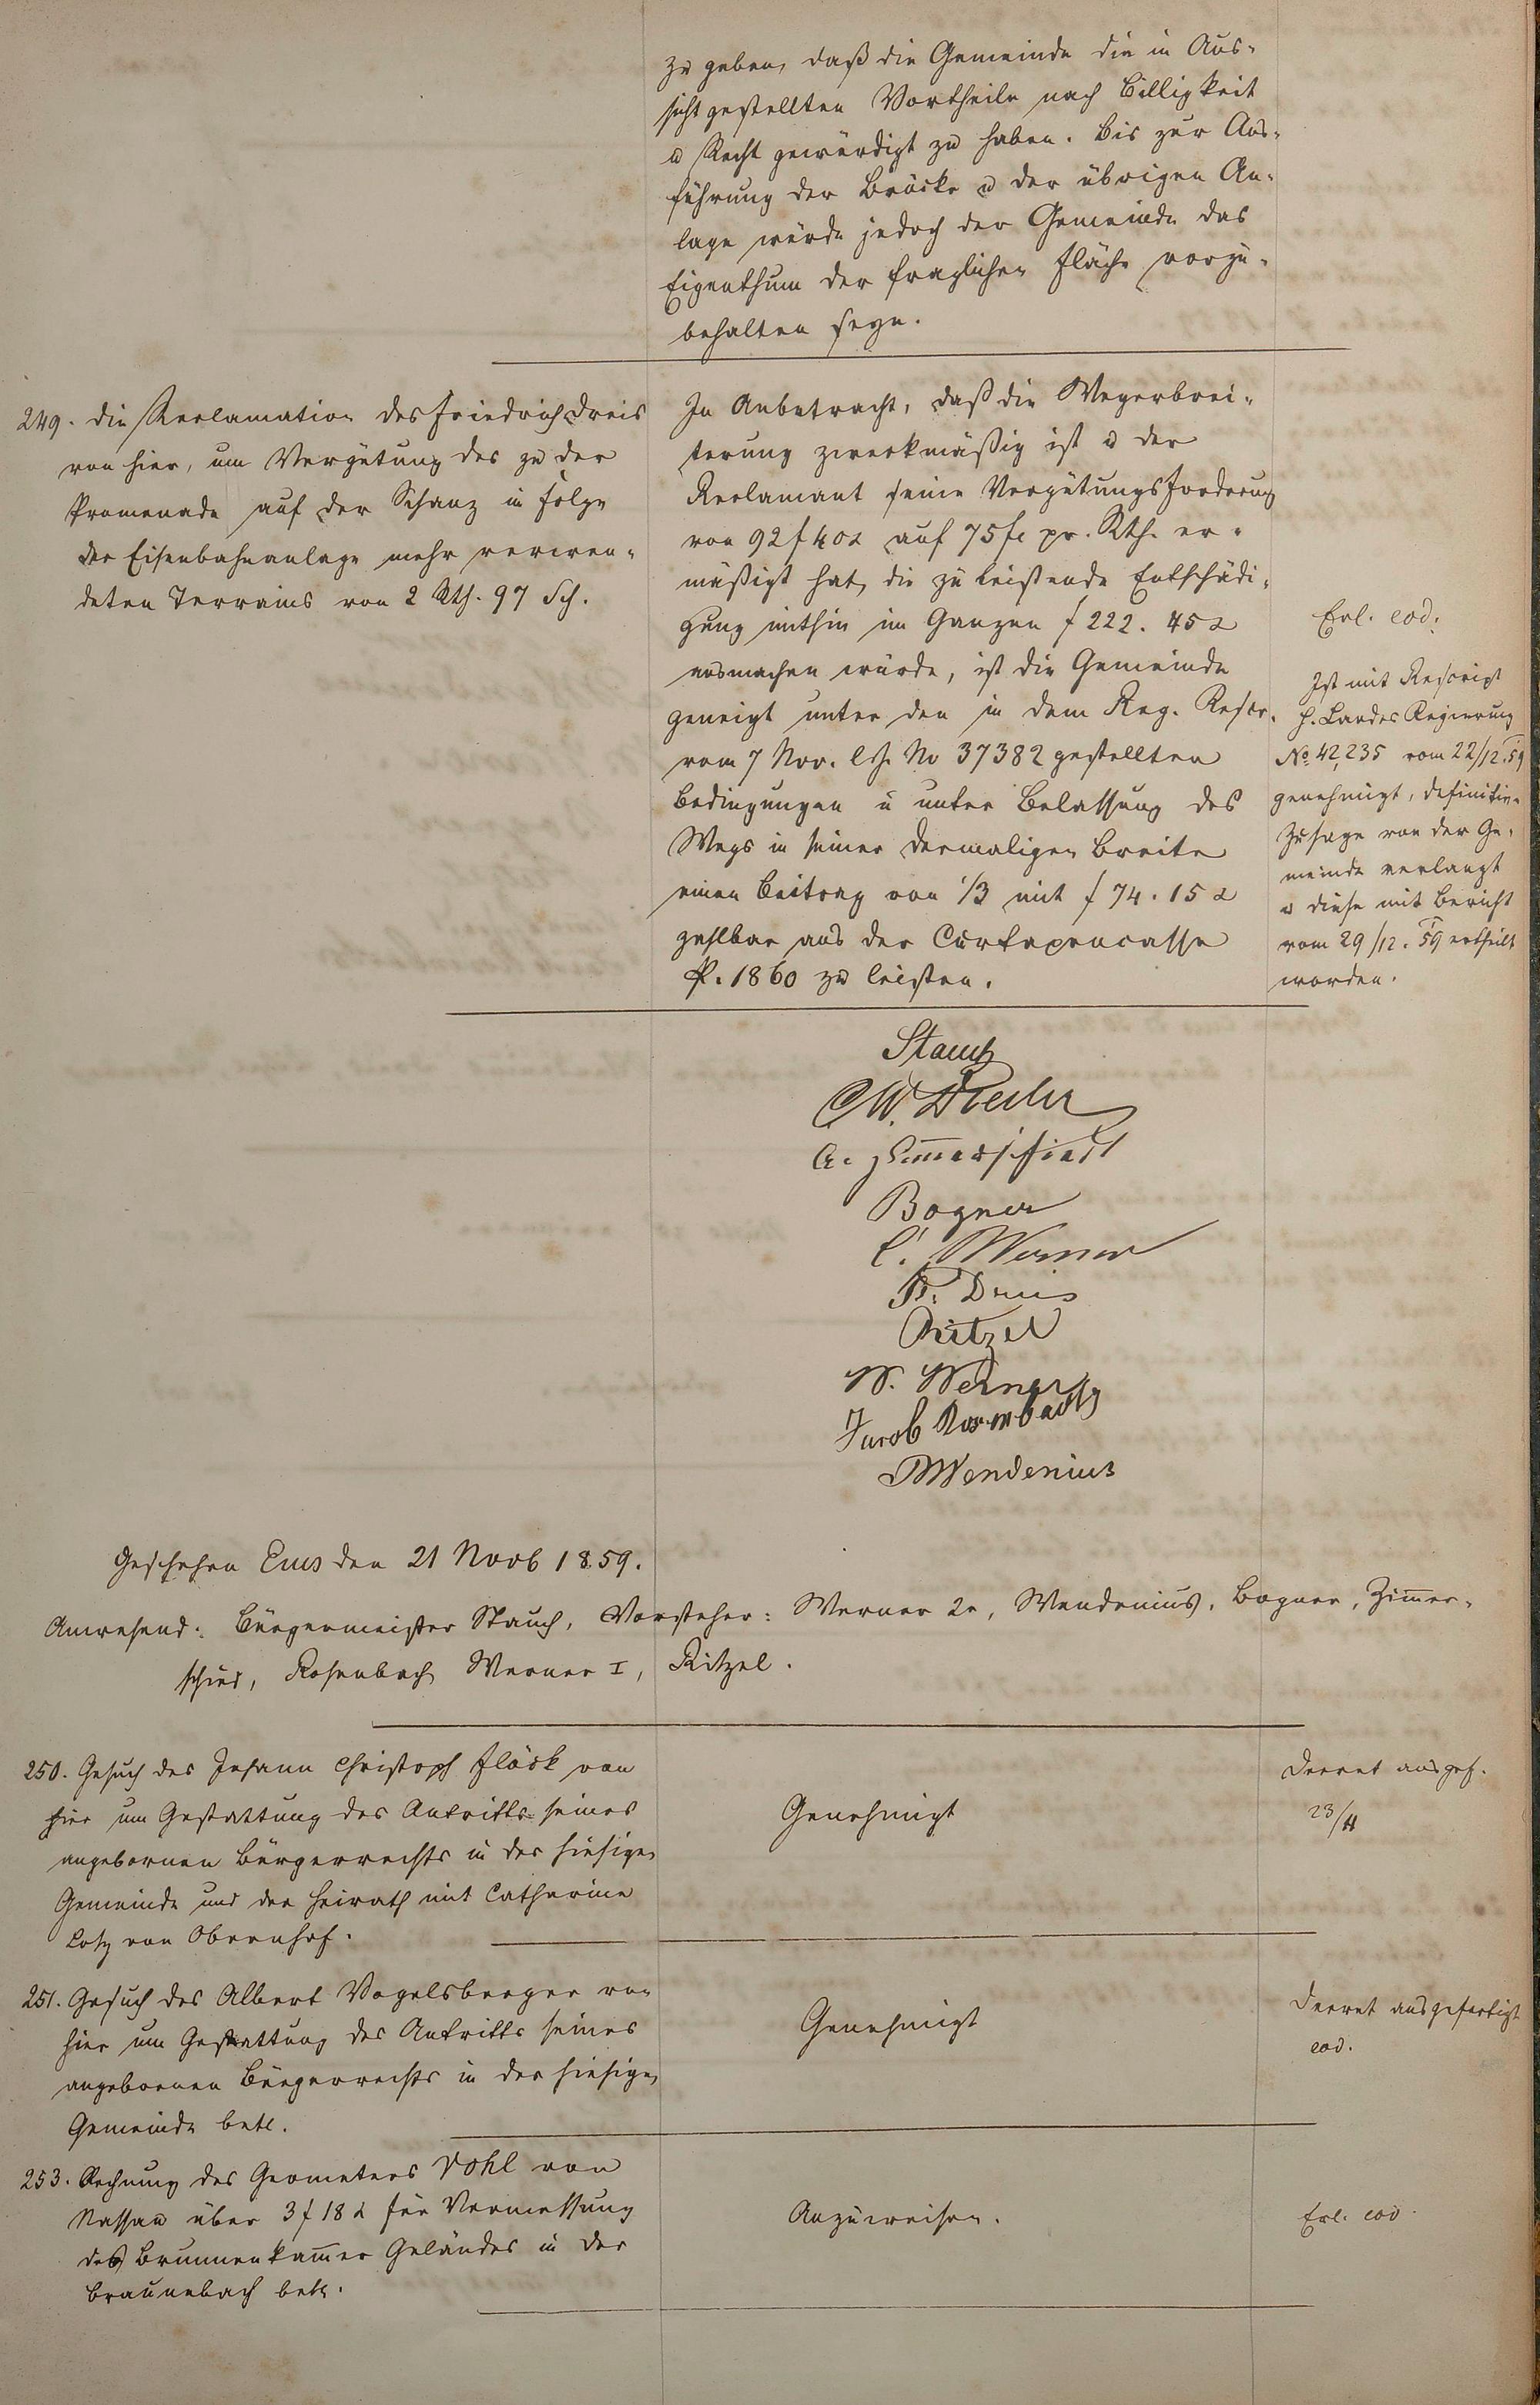 zu geben, daß die Gemeinde die in Aus-
sicht gestellten Vortheile nach Billigkeit
u Recht gewürdigt zu haben. Bis zur Aus-
führung der Brücke u der übrigen An-
lage würde jedoch der Gemeinde das
Eigenthum der fraglichen Fläche vorzu-
behalten seyn.
249. Die Reclamation des Friedrich Dreis
von hier, um Vergütung des zu der
Promenade auf der Schanz in Folge
der Eisenbahnanlage mehr verwen-
deten Terrains von 2 Rth. 97 Sch.
In Anbetracht, daß die Wegerbrei-
terung zweckmäßig ist u der
Reclamant seine Vergütungsforderung
von 92 f 40 x auf 75 fl pr. Rth. er-
mäßigt hat, die zu leistende Entschädi-
gung mithin im Ganzen f 222. 45 x
ausmachen würde, ist die Gemeinde
geneigt unter den in dem Reg. Rescr.
vom 7 Nov. l. J. No 37382 gestellten
Bedingungen u unter Belassung des
Wegs in seiner dermaligen Breite
einen Beitrag von 1/3 mit f 74. 15 x
zahlbar aus der Curtaxencasse
p. 1860 zu leisten.
Erl. eod.
Ist mit Rescript
H. Landes Regierung
No. 42,235 vom 22/12. 59
genehmigt, definitive
Zusage von der Ge-
meinde verlangt
u diese mit Bericht
vom 29/12. 59 ertheilt
worden.
Stauch
A. Zimmerschied
Bogner
C. Werner
Fr. Dreis
Ritzel
W. Werner
Jacob Rosenbach
Wendenius
Geschehen Ems den 21 Novb 1859.
Anwesend: Bürgermeister Stauch, Vorsteher: Werner 2r, Wendenius, Bogner, Zimer-
schied, Rosenbach, Werner I, Ritzel.
250. Gesuch des Johann Christoph Flöck von
hier um Gestattung des Antritts seines
angebornen Bürgerrechts in der hiesigen
Gemeinde und der Heirath mit Catharine
Lotz von Obernhof.
Genehmigt
Decret ausgef.
23/11
251. Gesuch des Albert Vogelsberger von
hier um Gestattung des Antritts seines
angebornen Bürgerrechts in der hiesigen
Gemeinde betr.
Genehmigt
Decret ausgefertigt
eod.
253. Rechnung des Geometers Vohl von
Nassau über 3 f 18 x für Vermessung
des Brunnenkamer Geländes in der
Braunebach betr.
Anzuweisen.
Erl. eod.